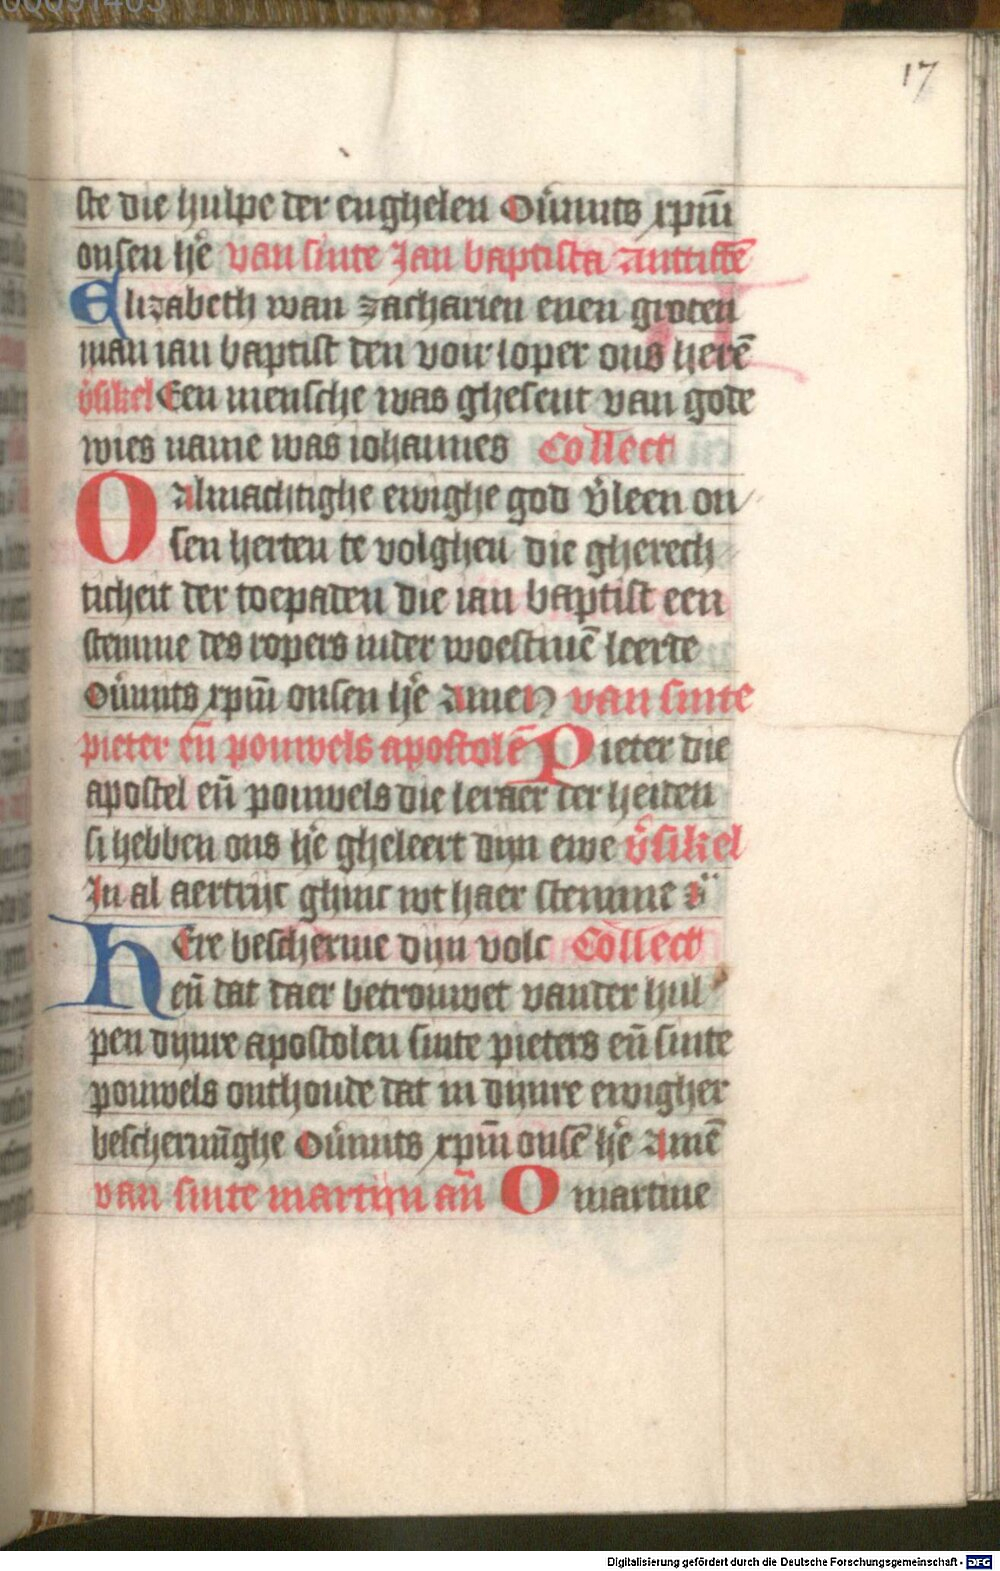 17
ste die hulpe der enghelen Ou̅mits xpm̅
onsen he̅ van sinte Jan baptista Antiffe̅
Elizabeth wan zacharien enen groten
man ian baptist den voir loper ons here̅
v̅sikel Een mensche was ghesent van gode
wies name was iohannes Collect
O Almachtighe ewighe god v̅leen on
sen herten te volghen die gherech
ticheit der toepaden die ian baptist een
stemme des ropers inder woestine̅ leerde
Ou̅mits xpm̅ onsen he̅ Amen van sinte
pieter en̅ pouwels apostole̅ Pieter die
apostel en̅ pouwels die leraer der heiden
si hebben ons he̅ gheleert dijn ewe v̅sikel
In al aertrijc ghinc wt haer stemme
HEre bescherme dijn volc Collect
en̅ dat daer betrouwet vander hul
pen dijnre apostolen sinte pieters en̅ sinte
pouwels onthoude dat in dijnre ewigher
beschermi̅ghe Ou̅mits xpm̅ onse̅ he̅ Ame̅
van sinte martijn an̅ O martine
Digitalisierung gefördert durch die Deutsche Forschungsgemeinschaft - DFG